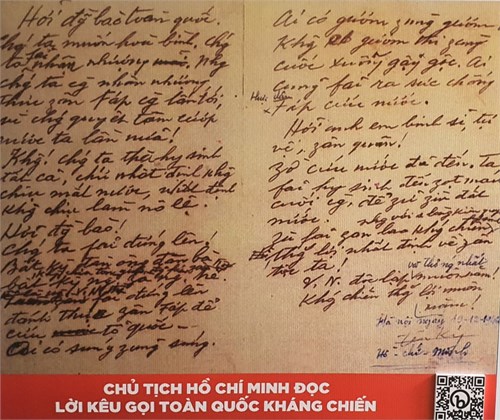 Hỡi đg bào toàn quốc.
Chg ta muốn hoà bình, chg
ta fải nhân nhượng. Nhg
chg ta cg nhân nhượng
thực zân Fáp cg lấn tới,
vì chg quyết tâm cướp
nước ta lần nữa!
Khg! chg ta thà hy sinh
tất cả, chứ nhất định khg
chịu mất nước, nhất định
khg chịu làm nô lệ.
Hỡi đg bào!
Chg ta fải đứng lên!
Bất kỳ đàn ông đàn bà
bất kỳ
fải đứng lên
đánh thực zân Fáp để
cứu tổ quốc.
Ai có súng zùng súng.
Ai có gươm zùng gươm.
Khg có gươm thì zùng
cuốc xuổng gậy gộc. Ai
cũng fải ra sức chống
Fáp cứu nước.
Hỡi anh em binh sĩ, tự
vệ, zân quân!
Zờ cứu nước đã đến. Ta
fải hy sinh đến zọt máu
cuối cg, để zữ zìn đất
nước.
Zù fải zan lao kháng chiến
thg lợi nhất định về zân
tộc ta!
V. N. độc lập
và thống nhất
muôn năm
Khg chiến thg lợi muôn
năm!
Hà nội ngày 19-12-
Hồ-chí-Minh
CHỦ TỊCH HỒ CHÍ MINH ĐỌC
LỜI KÊU GỌI TOÀN QUỐC KHÁNG CHIẾN